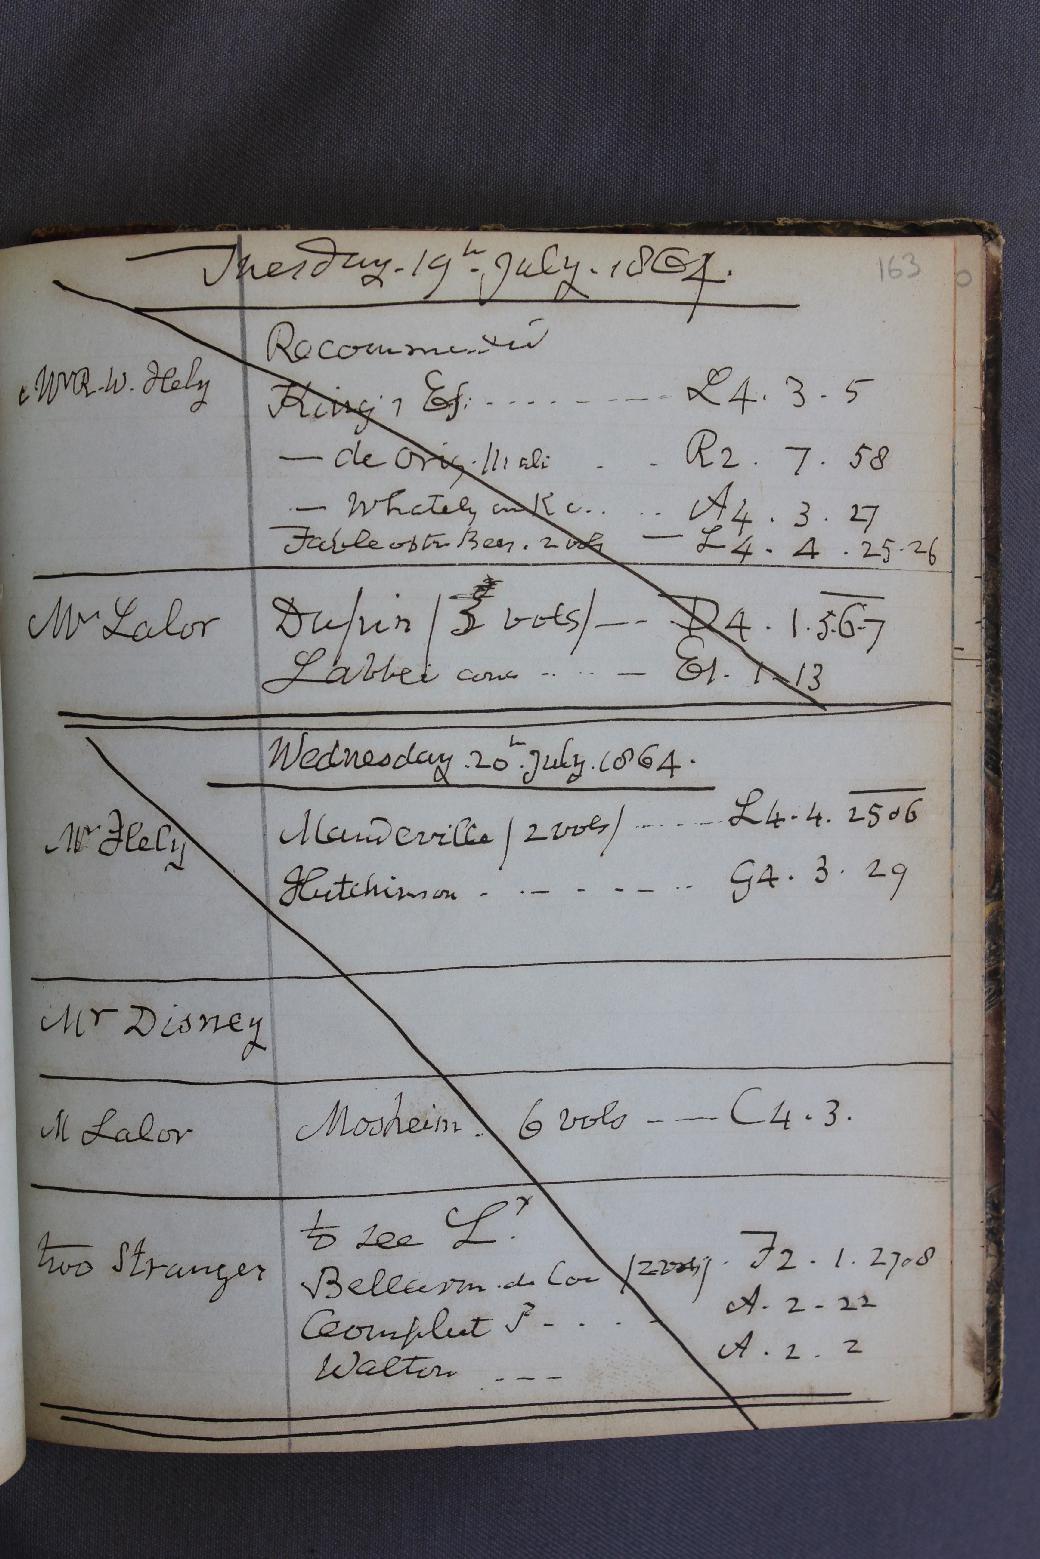 163
Tuesday. 19th July. 1864.
Recommended
Mr R. W. Hely King's Es. L4. 3. 5
— de Orig. Mali R2. 7. 58
— Whately on K A4. 3. 27
Fable of the Bees. 2 vols — L4. 4. 25.26
Mr Lalor Dupin (3 vols) — D4. 1. 5.6.7
Labbei conc — E1. 1 13
Wednesday. 20th July. 1864.
Mr Hely Mandeville (2 vols) L4. 4. 25.6
Hutchinson G4. 3. 29
Mr Disney
M Lalor Mosheim. 6 vols — C4. 3.
two Stranger to see Lr.
Bellarm. de Con (2 vols) F2. 1. 27.8
Complut P A. 2. 22
Walton A. 2. 2